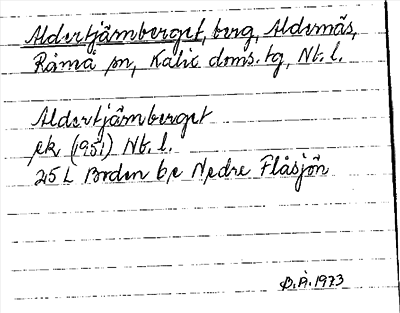 Aldertjärnberget, berg, Aldernäs,
Råneå sn, Kalix doms. tg, Nb. l.
Aldertjärnberget
ek (1951) Nb. l.
25 L Boden b,c Nedre Flåsjön
B.Å. 1973